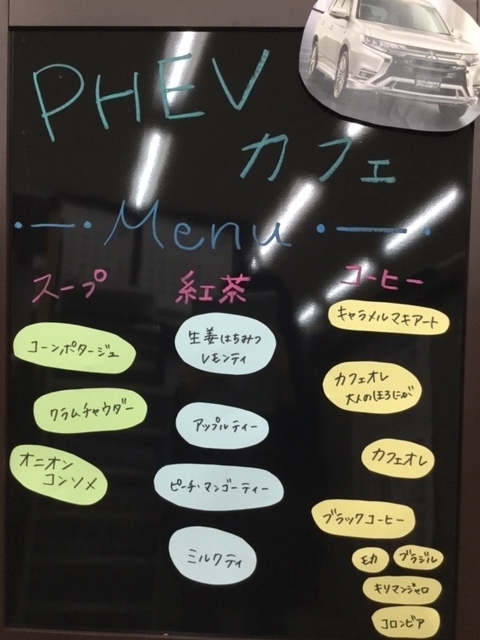 PHEV
カフェ
Menu
スープ
コーンポタージュ
クラムチャウダー
オニオン
コンソメ
紅茶
生姜はちみつ
レモンティ
アップルティー
ピーチ・マンゴーティー
ミルクティ
コーヒー
キャラメルマキアート
カフェオレ
大人のほろにが
カフェオレ
ブラックコーヒー
モカ
ブラジル
キリマンジャロ
コロンビア